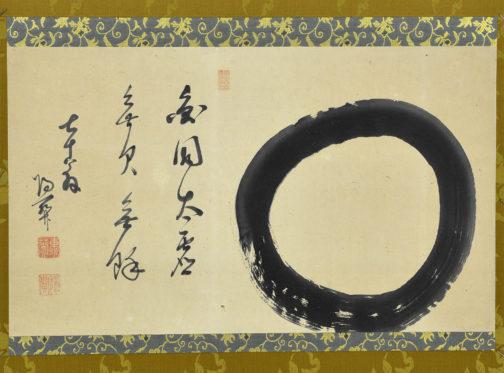 圓同太虚
無欠無餘
七十翁